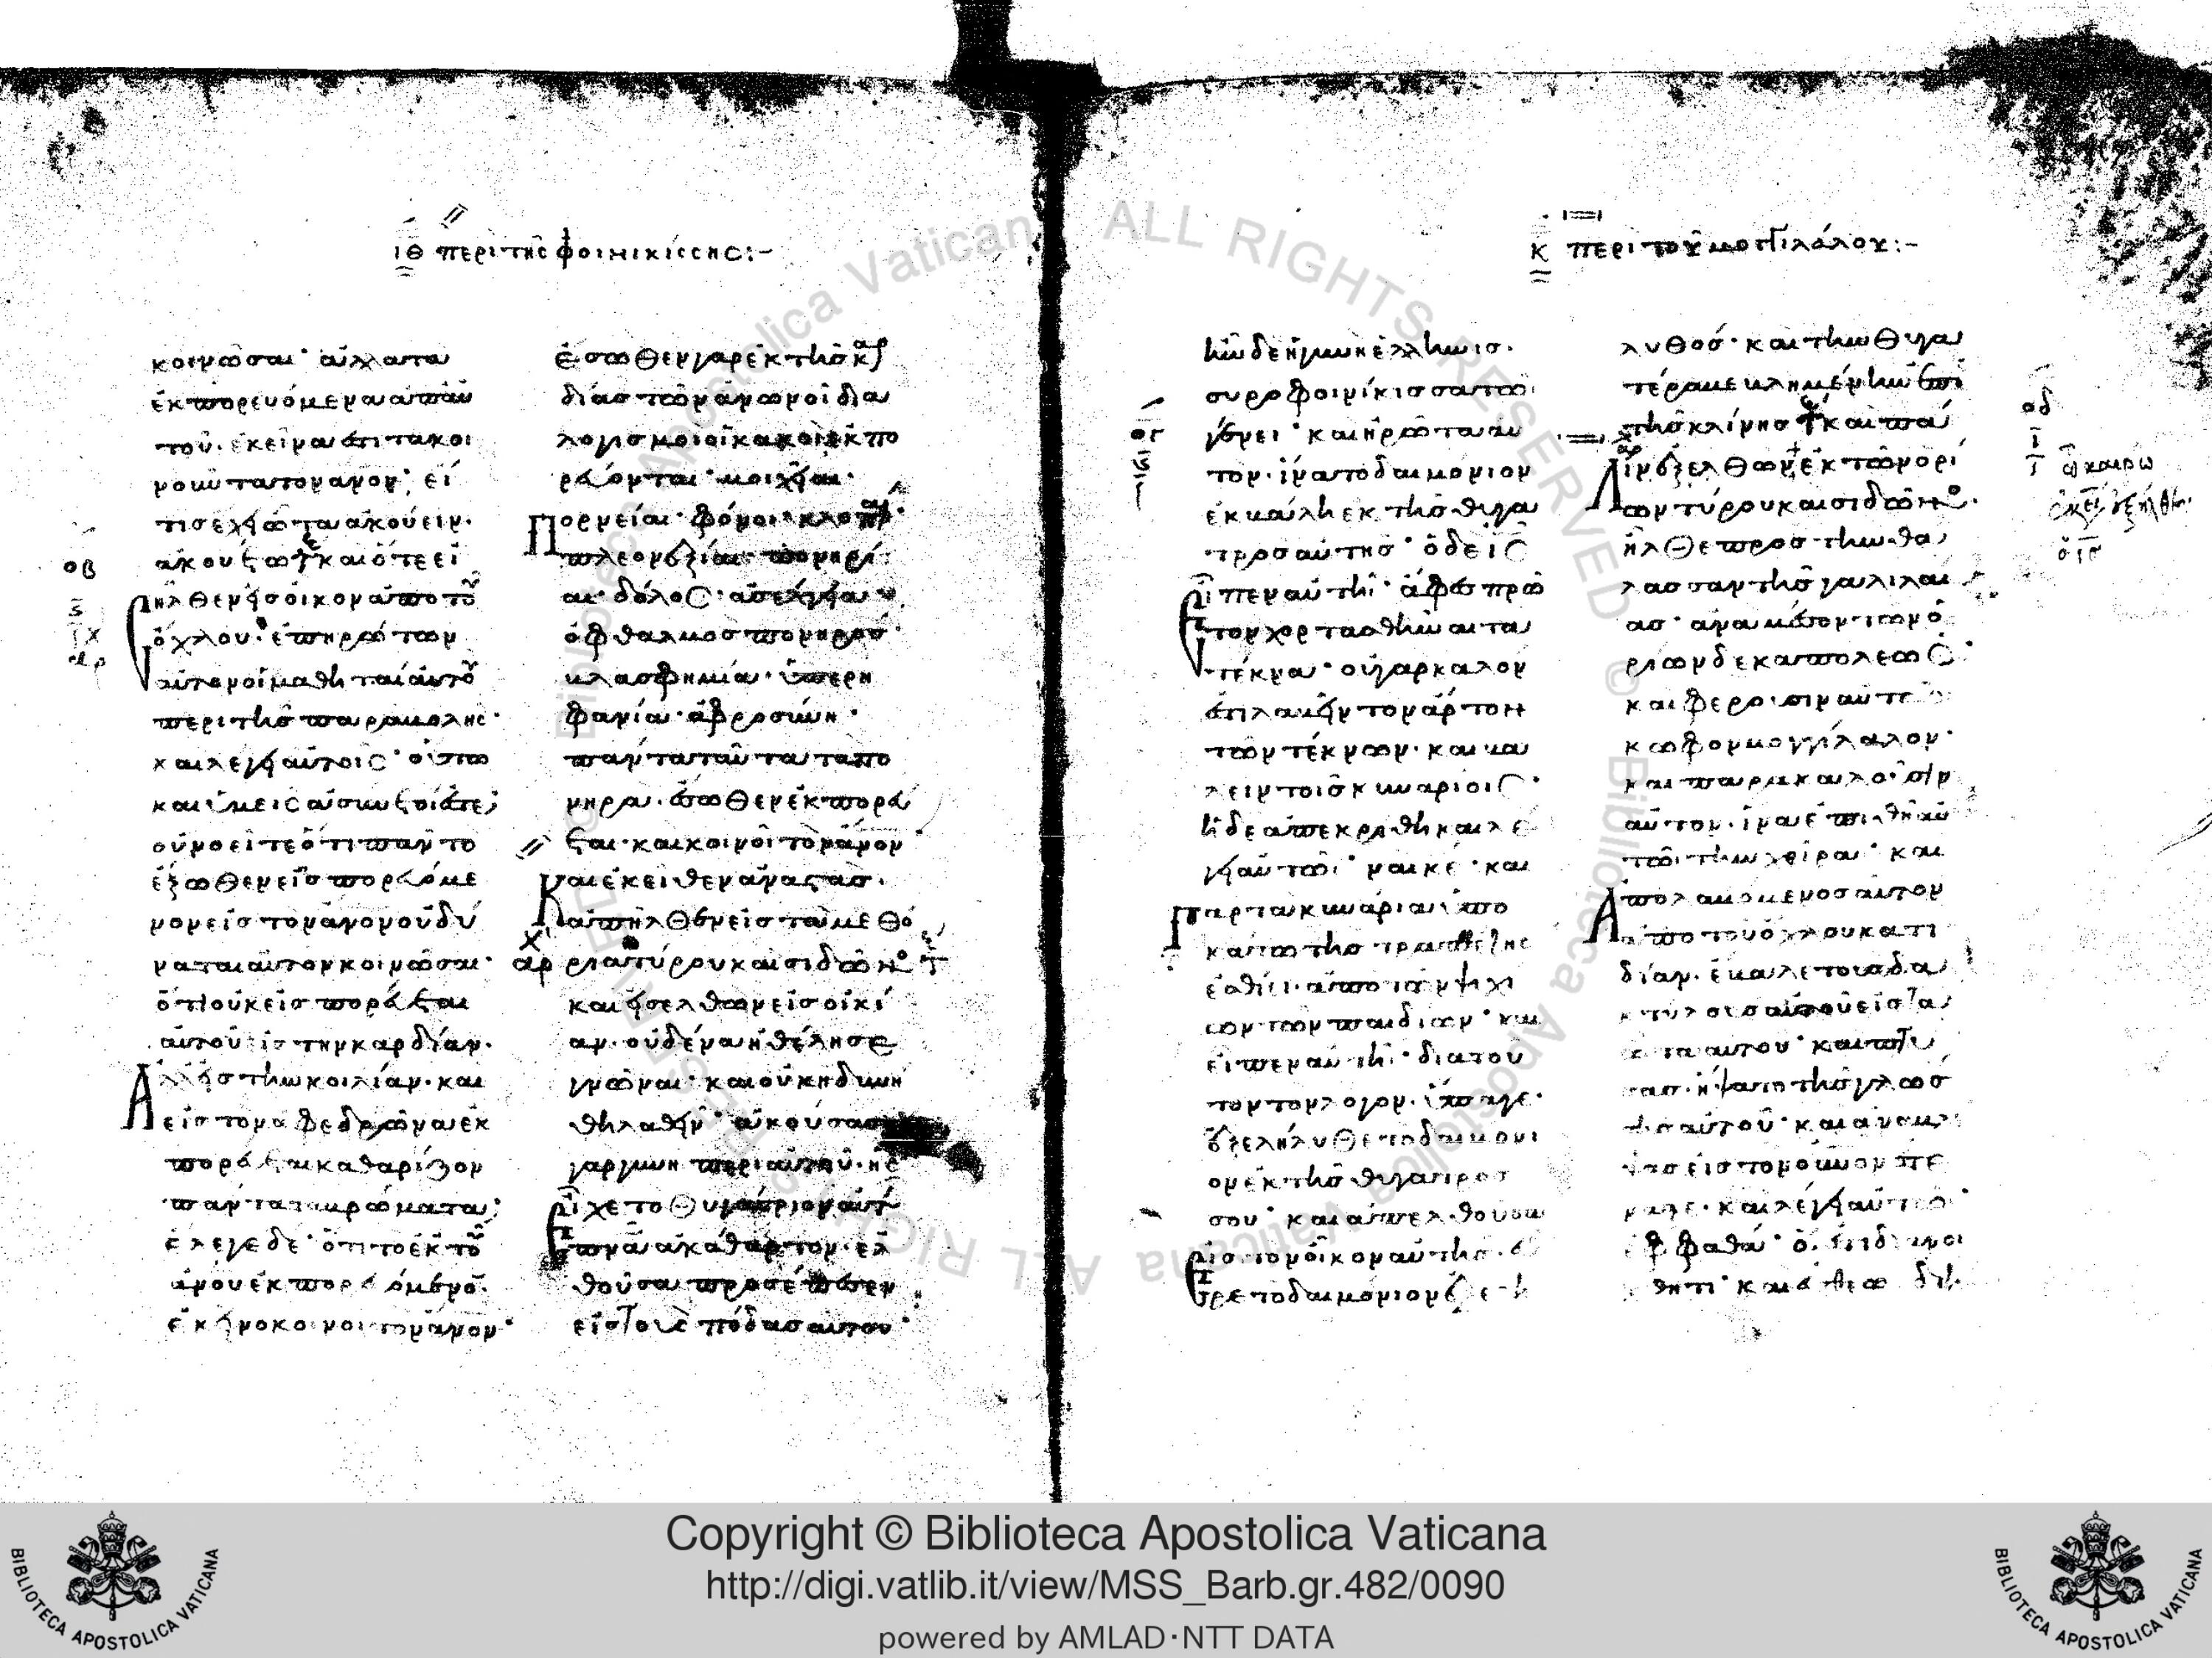 ιθ περι της φοινικισσης:-
κοινωσαι· αλλα τα
εκπορευόμενα απ αυ
του. εκεινα εστι τα κοι
νουντα τον ανον· εί
τις έχει ωτα ακούειν.
ακουέτω καὶ ότε εἰ
σηλθεν εις οικον απο του
όχλου· επηρώτων
αυτον οι μαθηται αυτου
περι της παραβολης·
και λεγει αυτοις· ούτω
και υμεις ασυνετοι εστε;
ου νοειτε ότι παν το
έξωθεν εισπορευόμε
νον εις τον ανον ου δύ
ναται αυτον κοινωσαι·
ότι ουκ εισπορευεται
αυτου εις την καρδίαν.
Αλλ εις την κοιλίαν· και
εις τον αφεδρωνα εκ
πορευεται καθαρίζον
παντα τα βρωματα;
έλεγε δε· ότι το εκ του
ανου εκπορευόμενον.
εκεινο κοινοι τον ανον·
έσωθεν γαρ εκ της καρ
δίας των ανων οι δια
λογισμοι οι κακοι εκπο
ρεύονται· μοιχειαι·
Πορνείαι· φόνοι· κλοπαι·
πλεονεξίαι· πονηρί
αι· δόλος· ασέλγεια·
οφθαλμος πονηρος·
βλασφημία· υπερη
φανία· αφροσύνη·
παντα ταυτα τα πο
νηρα. έσωθεν εκπορεύ
εται· και κοινοι τον ανον
Και εκειθεν αναστας.
απηλθεν εις τα μεθό
ρια τύρου και σιδωνος
και εισελθων εις οικί
αν. ουδένα ηθέλησε
γνωναι· και ουκ ηδυνή
θη λαθειν· ακούσασα
γαρ γυνη περι αυτου. ης
Ειχε το θυγάτριον αυτης
πνα ακάθαρτον. ελ
θουσα προσέπεσεν
εις τους πόδας αυτου·
οβ
αρ
κ περι του μογγιλάλου:-
ην δε η γυνη ελληνις.
συροφοινίκισσα τω
γένει· και ηρώτα αυ
τον. ίνα το δαιμονιον
εκβάλη εκ της θυγα
τρος αυτης· ο δε ις
Ειπεν αυτη· άφες πρω
τον χορτασθηναι τα
τέκνα· ου γαρ καλον
εστι λαβειν τον άρτον
των τέκνων. και βα
λειν τοις κυναρίοις·
η δε απεκρίθη και λε
γει αυτω· ναι κε· και
Γαρ τα κυνάρια υπο
κάτω της τραπέζης
εσθίει απο των ψιχί
ων των παιδίων· και
ειπεν αυτη· δια του
τον τον λογον. ύπαγε·
εξελήλυθε το δαιμονι
ον εκ της θυγατρος
σου· και απελθουσα
Εις τον οικον αυτης. ευ
ρε το δαιμόνιον εξελη
λυθός· και την θυγα
τέρα βεβλημένην επι
της κλίνης και πά
λιν εξελθων εκ των ορί
ων τύρου και σιδωνος.
ηλθε προς την θα
λασσαν της γαλιλαι
ας· ανα μέσον των ο
ριων δεκαπολεως·
και φερουσιν αυτω
κωφον μογγίλαλον·
και παρακαλουσιν
αυτον. ίνα επιθη αυ
τω την χειρα· και
Απολαβομενος αυτον
απο του όχλου κατ ι
δίαν. έβαλε τους δα
κτύλους αυτου εις τα
ωτα αυτου· και πτυ
σας. ήψατο της γλωσ
σης αυτου· και αναβλε
ψας εις τον ουνον εστε
ναξε· και λεγει αυτω·
εφφαθα· ό εστι διανοι
χθητι· και ευθεως δι
ογ
οδ
Copyright © Biblioteca Apostolica Vaticana
http://digi.vatlib.it/view/MSS_Barb.gr.482/0090
powered by AMLAD·NTT DATA
BIBLIOTECA APOSTOLICA VATICANA
BIBLIOTECA APOSTOLICA VATICANA